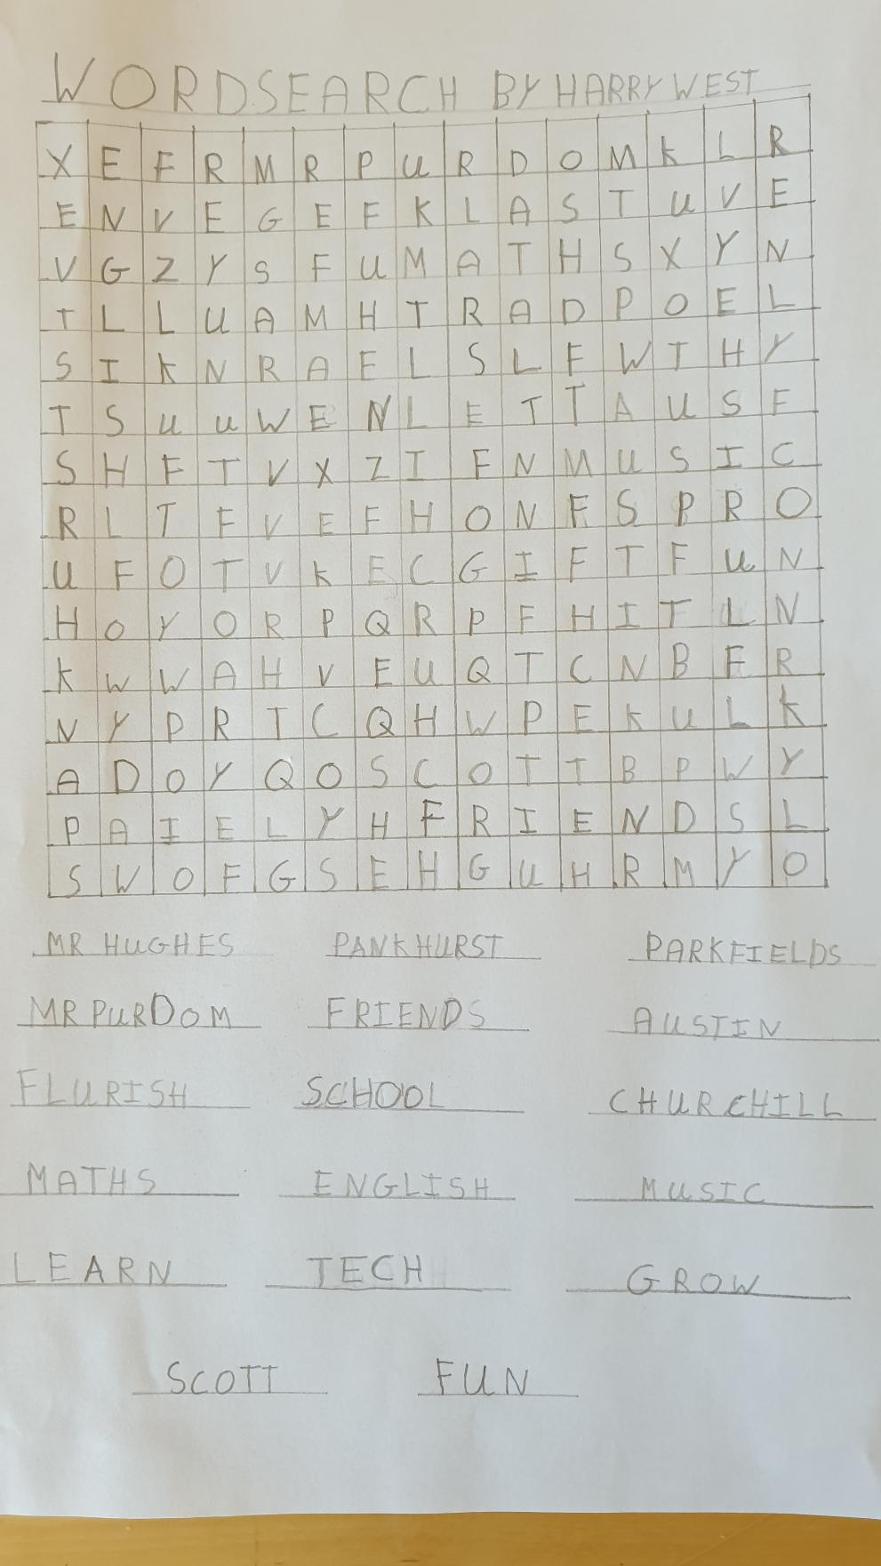 WORDSEARCH BY HARRY WEST
X E F R M R P U R D O M K L R
E N V E G E F K L A S T U V E
V G Z Y S F U M A T H S X Y N
T L L U A M H T R A D P O E L
S I K N R A E L S L F W I H Y
T S U U W E N L E I T A U S F
S H F T V X Z I F N M U S I C
R L T F V E F H O N F S P R O
U F O T V K E C G I F T F U N
H O Y O R P Q R P F H I T L N
K W W A H V E U Q T C N B F R
N Y P R T C Q H W P E K U L K
A D O Y Q O S C O T T B P W Y
P A I E L Y H F R I E N D S L
S W O F G S E H G U H R M Y O
MR HUGHES PANKHURST PARKFIELDS
MR PURDOM FRIENDS AUSTIN
FLURISH SCHOOL CHURCHILL
MATHS ENGLISH MUSIC
LEARN TECH GROW
SCOTT FUN